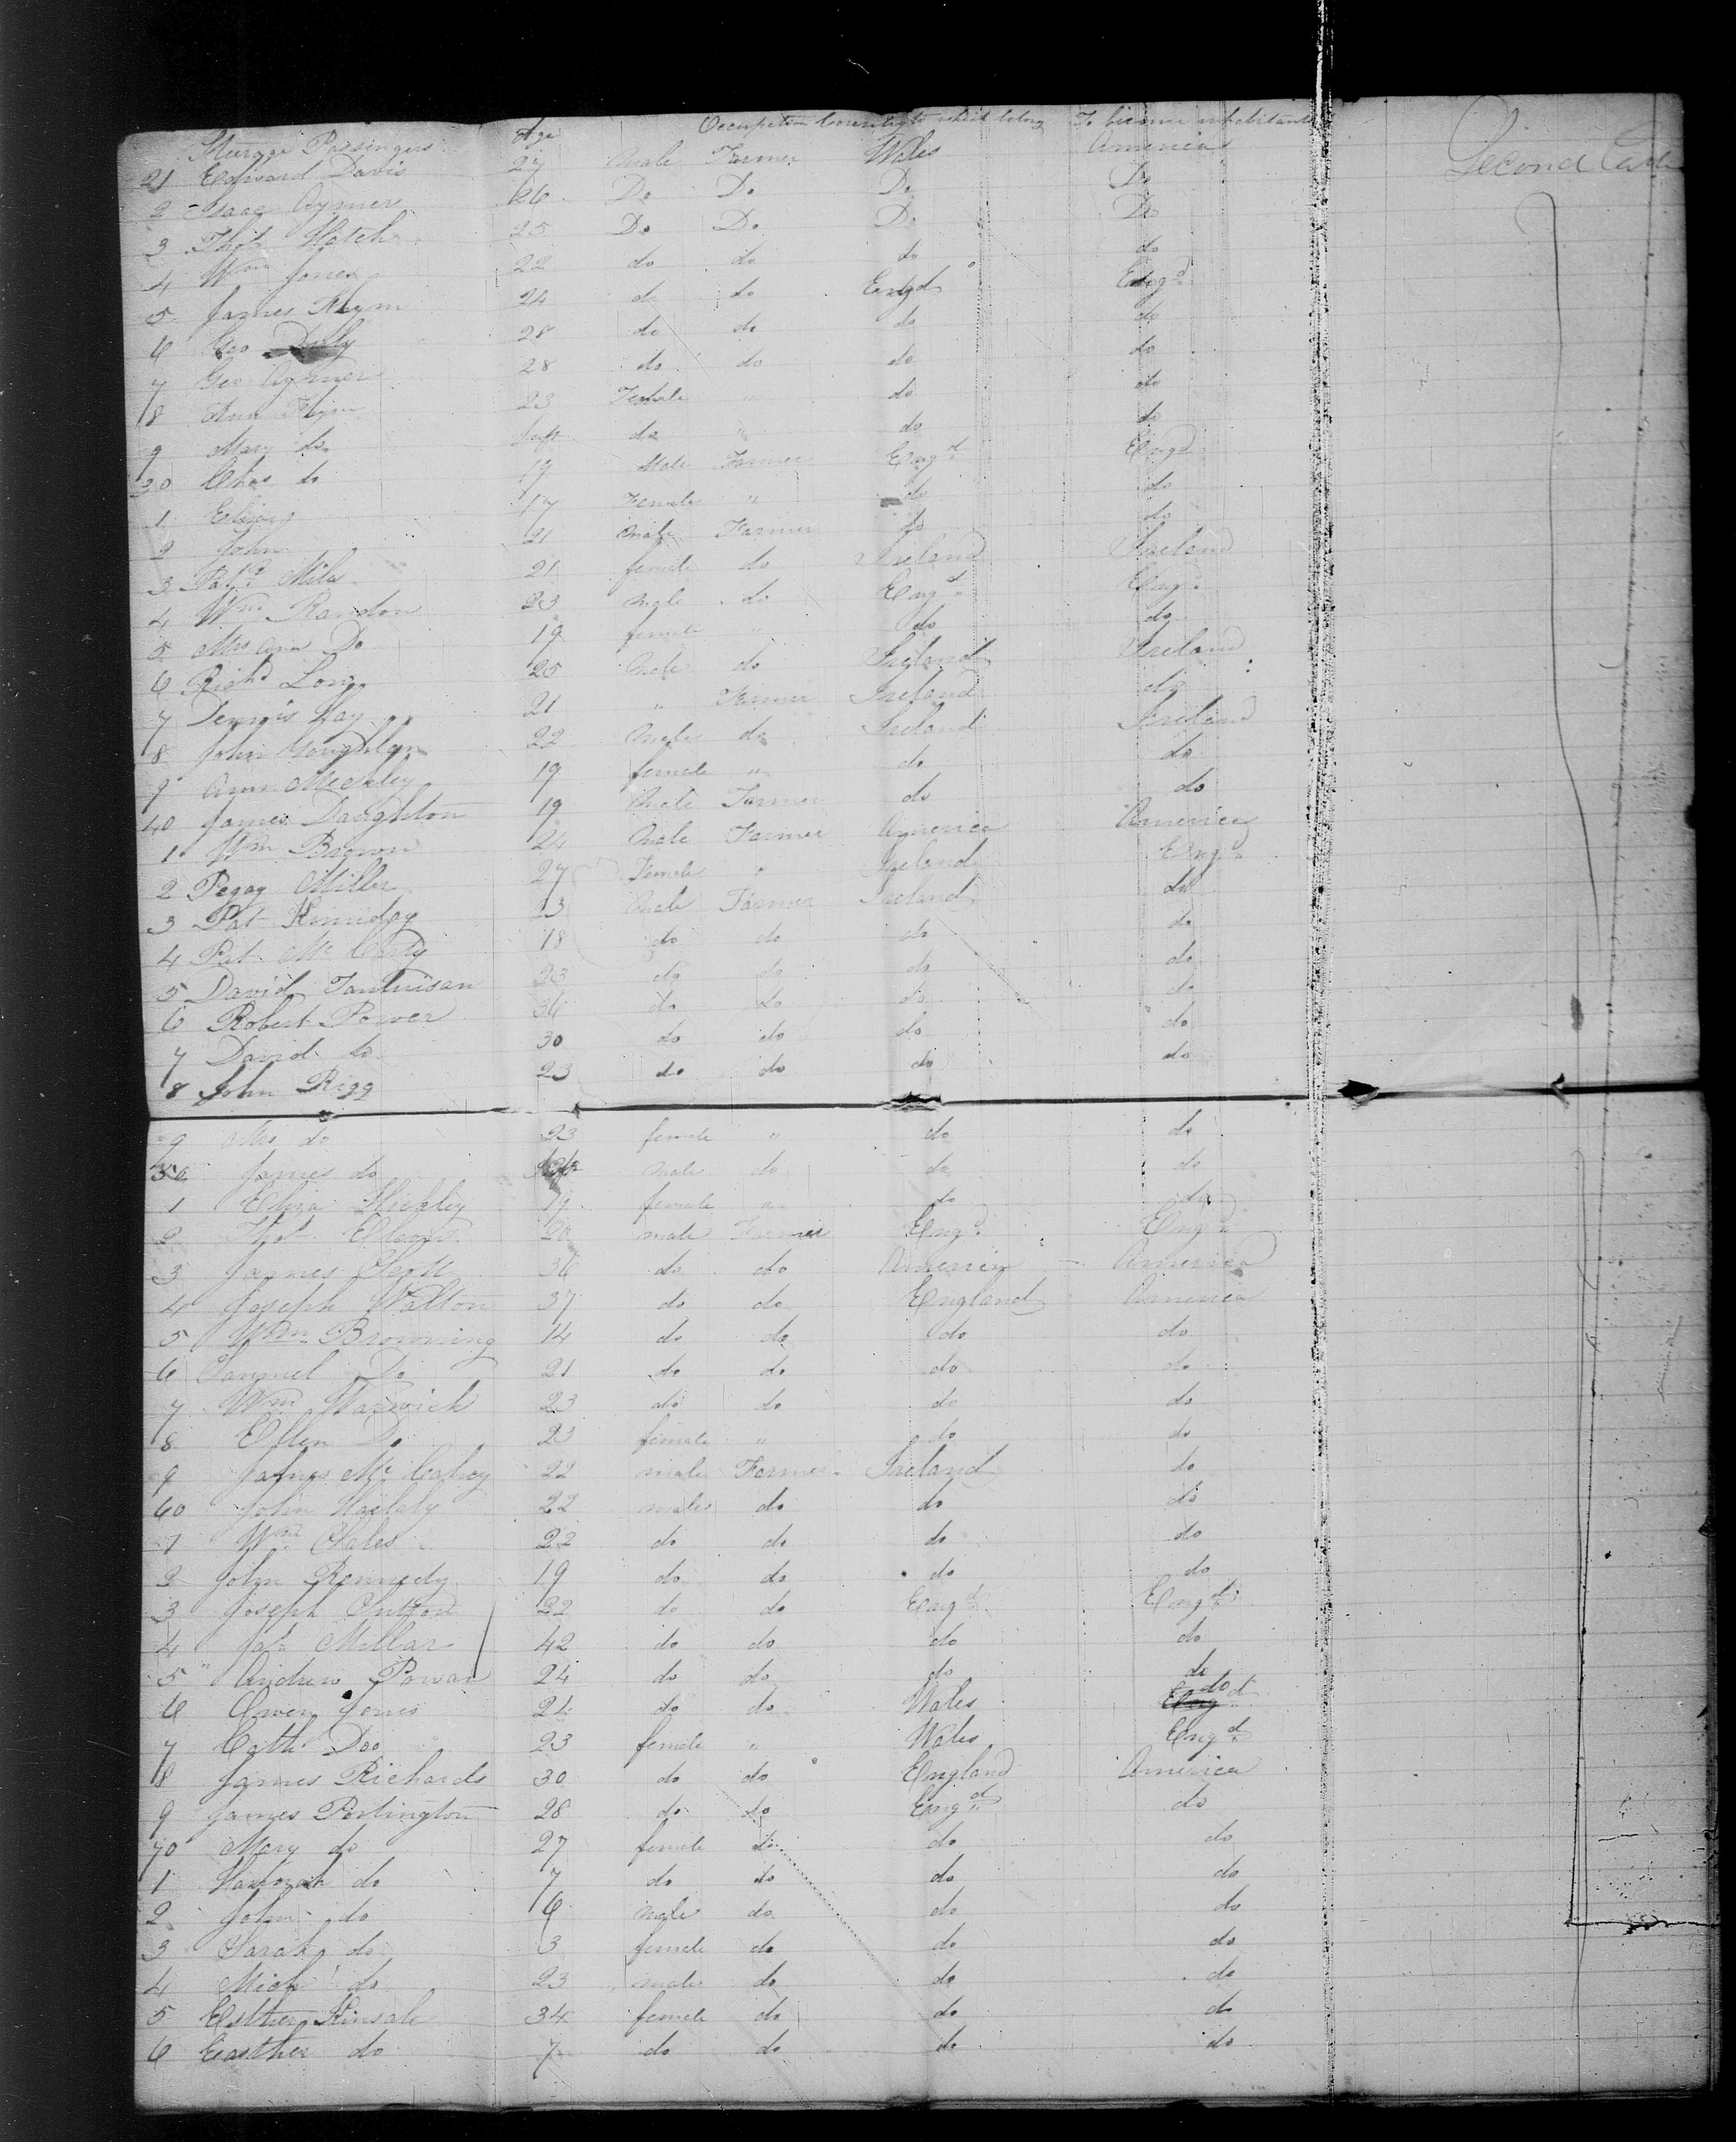 Steerage Passengers Age Occupation Country to which belong To become inhabitants
Second Cabin
21 Edward Davis 27 Male Farmer Wales America
2 Isaac Aymer 26 Do Do Do Do
3 Thos Hatch 25 Do Do Do Do
4 Wm Jones 22 do do do do
5 James Flyn 24 do do Engd Engd
6 Geo 28 do do do do
7 Geo Aymer 28 do do do do
8 Ann Flyn 23 Female " do do
9 Mary do Inft do " do do
30 Chas do 19 Male Farmer Engd Engd
1 17 Female " do do
2 John 21 male Farmer do do
3 Patk Miles 21 female do Ireland Ireland
4 Wm Randon 23 male do Engd Engd
5 Mrs Ann Do 19 female " do do
6 Richd Long 25 Male do Ireland Ireland
7 Dennis Hay 21 " Farmer Ireland do
8 John 22 Male do Ireland Ireland
9 Ann 19 female " do do
40 James Daughton 19 Male Farmer do do
1 Wm Brown 24 Male Farmer America America
2 Pegay Miller 27 Female " Ireland Engd
3 Pat Kimiday 23 Male Farmer Ireland do
4 Pat Mc Carty 18 do do do do
5 David 23 do do do do
6 Robert Power 36 do do do do
7 David do 30 do do do do
8 John Rigg 23 do do do do
9 Mrs do 23 female " do do
50 James do male do do do
1 Eliza Hickley 19 female " do do
2 Thos 20 male Farmer Engd Engd
3 James Scott 36 do do America America
4 Joseph Walton 37 do do England America
5 Wm Browning 14 do do do do
6 Samuel Do 21 do do do do
7 Wm Warwick 23 do do do do
8 Ellen Do 23 female " do do
9 James Mc Cahey 22 male Farmer Ireland do
60 John 22 male do do do
1 Wm Sales 22 do do do do
2 John Kennedy 19 do do do do
3 Joseph Sutton 22 do do Engd Engd
4 Jas Millar 42 do do do do
5 " Andrew Powar 24 do do do do
6 Owen Jones 24 do do Wales do
7 Cath Doo 23 female " Wales Engd
8 James Richards 30 do do England America
9 James Portington 28 do do Engd do
70 Mary do 27 female do do do
1 Hannah do 7 do do do do
2 John do 6 male do do do
3 Sarah do 3 female do do do
4 Mich do 23 male do do do
5 Esther Kinsale 34 female do do do
6 Easther do 7 do do do do